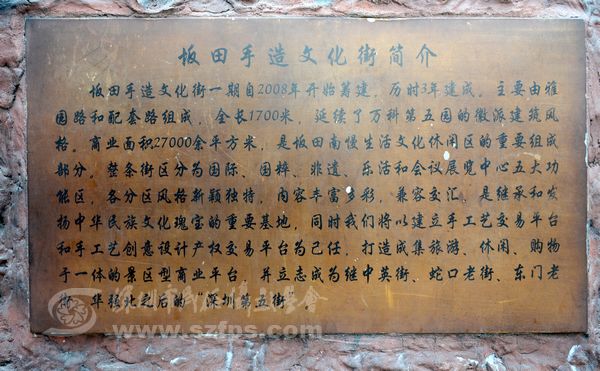 坂田手造文化街简介
坂田手造文化街一期自2008年开始筹建，历时3年建成。主要由雅
园路和配套路组成，全长1700米，延续了万科第五园的徽派建筑风
格。商业面积27000余平方米，是坂田南慢生活文化休闲区的重要组成
部分。整条街区分为国际、国粹、非遗、乐活和会议展览中心五大功
能区，各分区风格新颖独特，内容丰富多彩，兼容交汇，是继承和发
扬中华民族文化瑰宝的重要基地，同时我们将以建立手工艺交易平台
和手工艺创意设计产权交易平台为己任，打造成集旅游、休闲、购物
于一体的景区型商业平台，并立志成为继中英街、蛇口老街、东门老
街、华强北之后的“深圳第五街”。
www.szfps.com